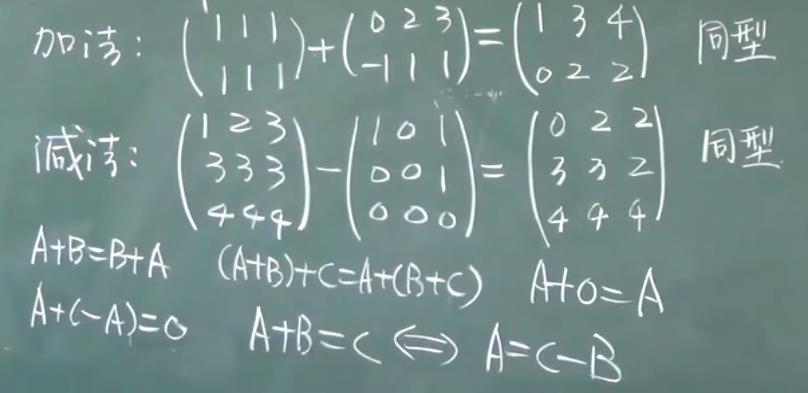 加法: (1 1 1 / 1 1 1) + (0 2 3 / -1 1 1) = (1 3 4 / 0 2 2) 同型
减法: (1 2 3 / 3 3 3 / 4 4 4) - (1 0 1 / 0 0 1 / 0 0 0) = (0 2 2 / 3 3 2 / 4 4 4) 同型
A+B=B+A (A+B)+C=A+(B+C) A+0=A
A+(-A)=0 A+B=C⇔A=C-B